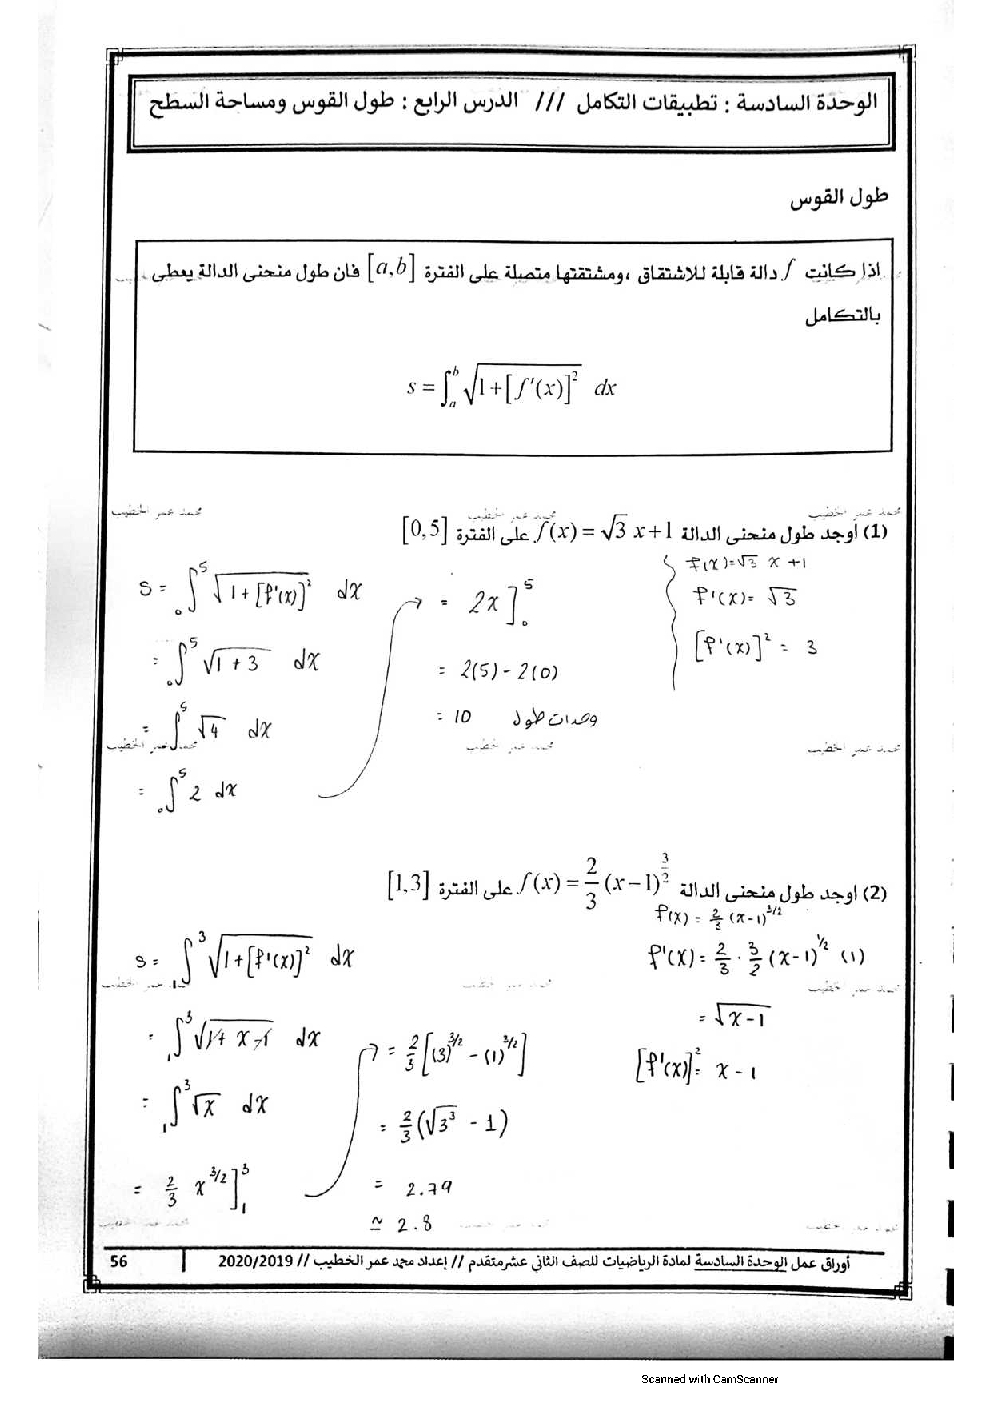 الوحدة السادسة : تطبيقات التكامل /// الدرس الرابع : طول القوس ومساحة السطح
طول القوس
اذا كانت f دالة قابلة للاشتقاق ،ومشتقتها متصلة على الفترة [a,b] فان طول منحنى الدالة يعطى
بالتكامل
s = ∫_a^b √(1+[f'(x)]²) dx
محمد عمر الخطيب محمد عمر الخطيب محمد عمر الخطيب
(1) اوجد طول منحنى الدالة f(x) = √3 x+1 على الفترة [0,5]
f(x)=√3 x +1
f'(x)= √3
[f'(x)]² = 3
s = ∫_0^5 √(1+[f'(x)]²) dx
= ∫_0^5 √(1+3) dx
= ∫_0^5 √4 dx
= ∫_0^5 2 dx
= 2x]_0^5
= 2(5) - 2(0)
= 10 وحدات طول
محمد عمر الخطيب محمد عمر الخطيب محمد عمر الخطيب
(2) اوجد طول منحنى الدالة f(x) = 2/3 (x−1)^(3/2) على الفترة [1,3]
f(x) = 2/3 (x-1)^(3/2)
f'(x) = 2/3 · 3/2 (x-1)^(1/2) (1)
= √(x-1)
[f'(x)]² = x-1
s = ∫_1^3 √(1+[f'(x)]²) dx
= ∫_1^3 √(1+x-1) dx
= ∫_1^3 √x dx
= 2/3 x^(3/2)]_1^3
= 2/3 [(3)^(3/2) - (1)^(3/2)]
= 2/3 (√3³ - 1)
= 2.79
≃ 2.8
محمد عمر الخطيب محمد عمر الخطيب محمد عمر الخطيب
أوراق عمل الوحدة السادسة لمادة الرياضيات للصف الثاني عشرمتقدم // إعداد محمد عمر الخطيب // 2020/2019 56
Scanned with CamScanner